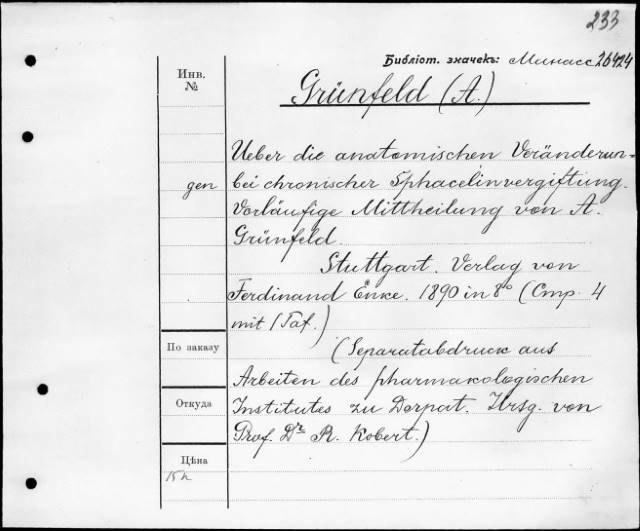 233
Библіот. значекъ: Минасс 26424
Инв.
№
Grünfeld (A.)
Ueber die anatomischen Veränderun-
gen bei chronischer Sphacelinvergiftung.
Vorläufige Mittheilung von A.
Grünfeld.
Stuttgart. Verlag von
Ferdinand Enke. 1890 in 8° (Стр. 4
mit 1 Taf.)
По заказу
(Separatabdruck aus
Arbeiten des pharmakologischen
Откуда
Institutes zu Dorpat. Hrsg. von
Prof. Dr R. Kobert.)
Цѣна
15 к